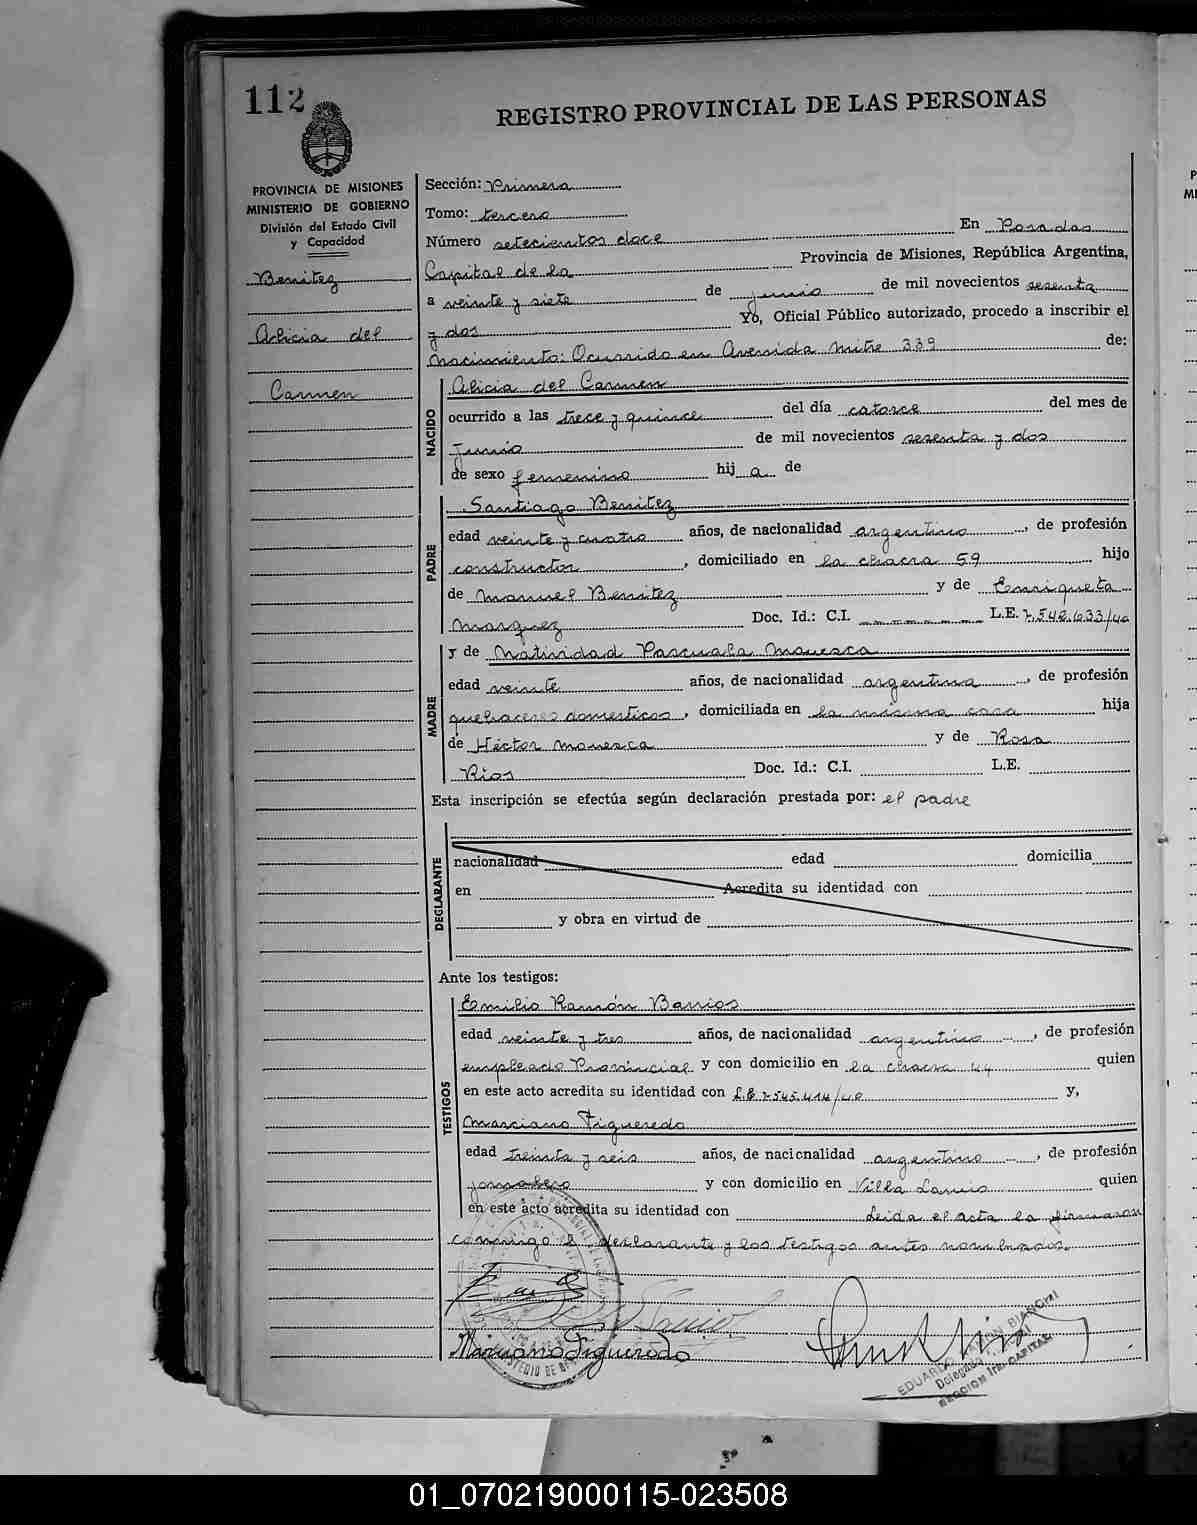 112
REGISTRO PROVINCIAL DE LAS PERSONAS
PROVINCIA DE MISIONES
MINISTERIO DE GOBIERNO
División del Estado Civil
y Capacidad
Benitez
Alicia del
Carmen
Sección: Primera
Tomo: tercero
Número setecientos doce En Posadas
Capital de la Provincia de Misiones, República Argentina,
a veinte y siete de junio de mil novecientos sesenta
y dos Yo, Oficial Público autorizado, procedo a inscribir el
nacimiento: Ocurrido en Avenida Mitre 339 de:
NACIDO
Alicia del Carmen
ocurrido a las trece y quince del día catorce del mes de
junio de mil novecientos sesenta y dos
de sexo femenino hij a de
PADRE
Santiago Benitez
edad veinte y cuatro años, de nacionalidad argentino, de profesión
constructor, domiciliado en la chacra 59 hijo
de Manuel Benitez y de Enriqueta
Marquez Doc. Id.: C.I. L.E. 7.548.633/40
MADRE
y de Natividad Pascuala Mouesca
edad veinte años, de nacionalidad argentina, de profesión
quehaceres domesticos, domiciliada en la misma casa hija
de Héctor Mouesca y de Rosa
Rios Doc. Id.: C.I. L.E.
Esta inscripción se efectúa según declaración prestada por: el padre
DECLARANTE
nacionalidad edad domicilia
en Acredita su identidad con
y obra en virtud de
Ante los testigos:
TESTIGOS
Emilio Ramón Barrios
edad veinte y tres años, de nacionalidad argentino, de profesión
empleado Provincial y con domicilio en la chacra 44 quien
en este acto acredita su identidad con L.E. 7.545.414/40 y,
Marciano Figueredo
edad treinta y seis años, de nacionalidad argentino, de profesión
jornalero y con domicilio en Villa Lanus quien
en este acto acredita su identidad con Leida el acta la firmaron
conmigo el declarante y los testigos antes nombrados.
Marciano Figueredo
EDUARDO RAMON BIANCHI
Delegado
SECCION 1ra CAPITAL
01_070219000115-023508